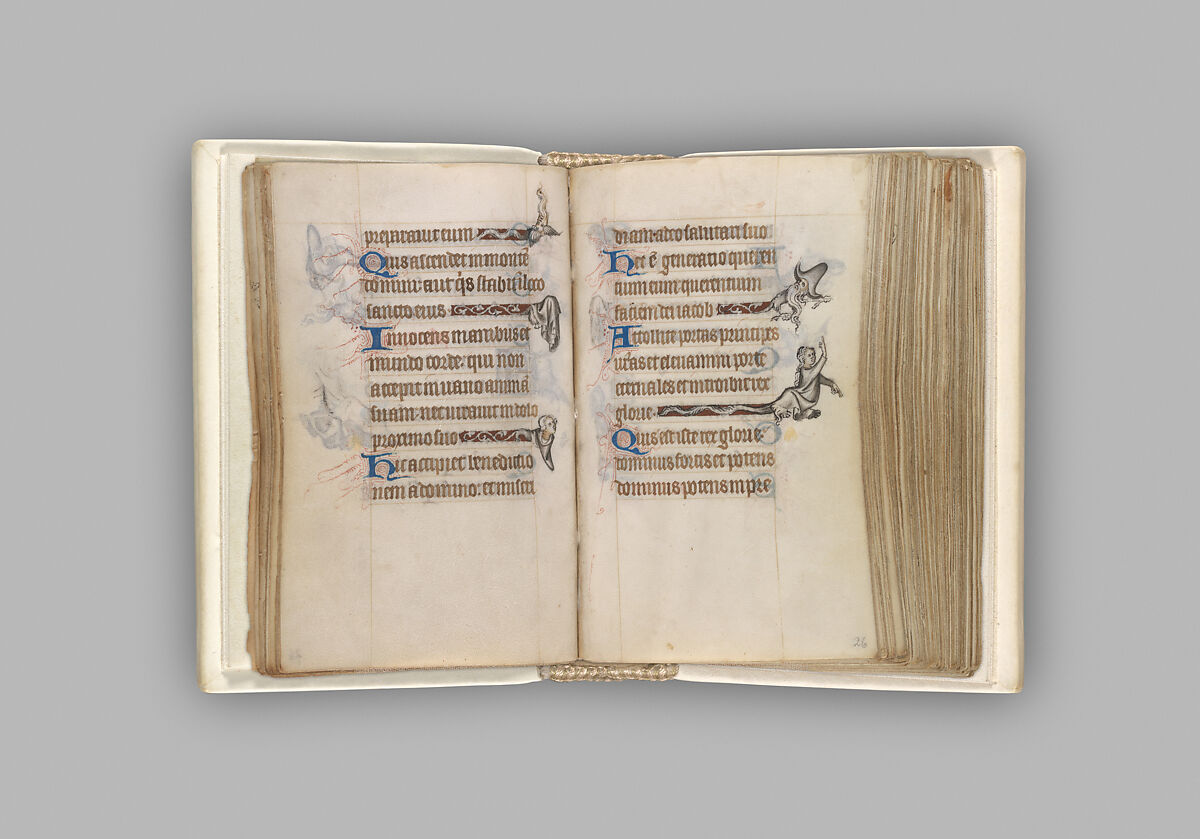 preparavit eum
Quis ascendet in monte
domini: aut q̃s stabit ĩ loco
sancto eius
Innocens manibus et
mundo corde: qui non
accepit in vano animã
suam nec iuravit in dolo
proximo suo
Hic accipiet benedictio
nem a domino: et miseri
diam a deo salutari suo
Hec ẽ generatio queren
tium eum querentium
faciem dei iacob
Attolite portas principes
vr̃as et elevamini porte
eternales et introibit rex
glorie
Quis est iste rex glorie:
dominus fortis et potens
dominus potens in pre
26